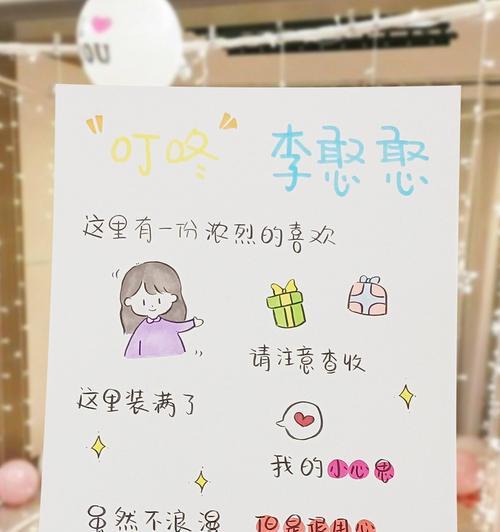 OU
"叮咚" 李憨憨
这里有一份浓烈的喜欢
请注意查收
这里装满了
我的小心思
虽然不浪漫 但是很用心